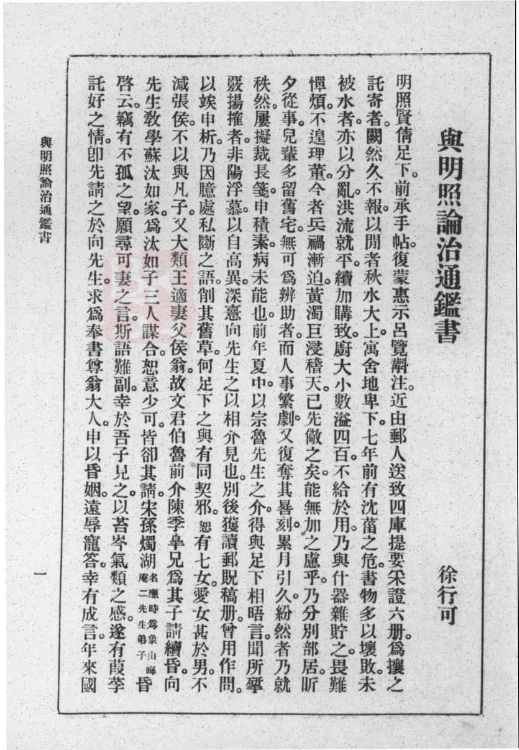 與明照論治通鑑書
徐行可
明照賢倩足下。前承手帖。復蒙惠示呂覽斠注。近由郵人送致四庫提要采證六册。爲攘之
託寄者。闕然久不報。以閒者秋水大上。寓舍地卑下。七年前有沈菑之危。書物多以壞敗。未
被水者。亦以分亂。洪流就平。續加購致。厨大小數溢四百。不給於用。乃與什器雜貯之。畏難
憚煩。不遑理董。今者兵禍漸迫。黃濁巨浸稽天。已先儆之矣。能無加之慮乎。乃分別部居。昕
夕從事。兒輩多留舊宅。無可爲辨助者。而人事繁劇。又復奪其晷刻。累月引久。紛然者乃就
秩然。屢擬裁長箋。申積素。病未能也。前年夏中。以宗魯先生之介。得與足下相晤言。聞所
發揚搉者。非陽浮慕以自高異。深憙向先生之以相介見也。別後獲讀郵貺稿册。曾用作問。
以竢申析。乃因臆處私斷之語。削其舊草。何足下之與有同契邪。恕有七女。愛女甚於男。不
減張侯。不以與凡子。又大類王適妻父侯翁。故文君伯魯前介陳季皋兄爲其子請續昏。向
先生教學蘇汰如家。爲汰如子三人謀合。恕意少可。皆卻其請。宋孫燭湖名應時爲象山晦庵二先生弟子昏
啓云。竊有不孤之望。願尋可妻之言。斯語難副。幸於吾子見之。以苔岑氣類之感。遂有葭莩
託好之情。卽先請之於向先生。求爲奉書尊翁大人。申以昏姻。遠辱寵答。幸有成言。年來國
與明照論治通鑑書
一